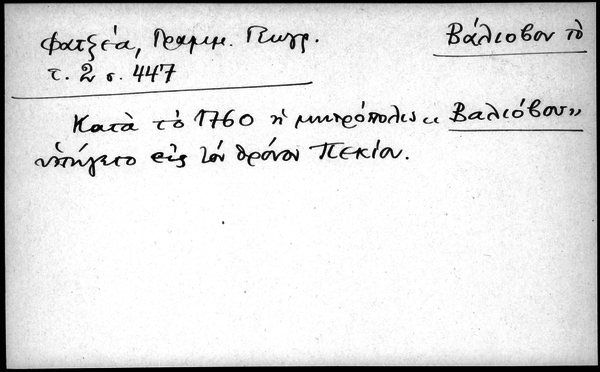 Φατζέα, Γραμμ. Γεωγρ.
τ. 2 σ. 447
Βάλιοβον τὸ
Κατὰ τὸ 1760 ἡ μητρόπολις « Βαλιόβου»
ὑπήγετο εἰς τὸν θρόνον Πεκίου.